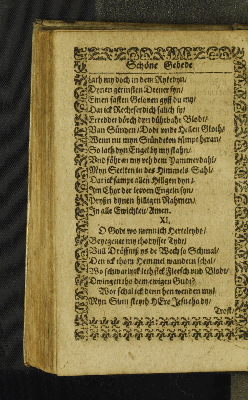 Schöne Gebede
Lath my doch in dem Ryke dyn/
Dynen geringsten Deener syn/
Einen fasten Geloven gyff du my/
Dat ick Rechtferdich salich sy/
Erredder dörch dyn dührbahr Blodt/
Van Sünden/ Dodt unde Hellen Gloth/
Wenn nu myn Stündeken kümpt heran/
So lath dyn Engel by my stahn/
Und föhr my
Myn Seelken in des Himmels Sahl/
Dat ick sampt allen Hilligen dyn/
Im Chor der leven Engeln syn/
Prysen dynen hilligen Nahmen/
In alle Ewicheit/ Amen.
XI.
O Godt wo mennich Herteleydt/
Begegenet my tho dysser Tydt/
Vull Dröffnüß ys de Wech so Schmal/
Den ick thom Hemmel wandern schal/
Wo schwarlyck leth sick Fleesch und Blodt/
Dwingen tho dem ewigen Gudt?
Wor schal ick denn hen wenden my?
Myn Sinn steyth HErr Jesu tho dy/
Trost/